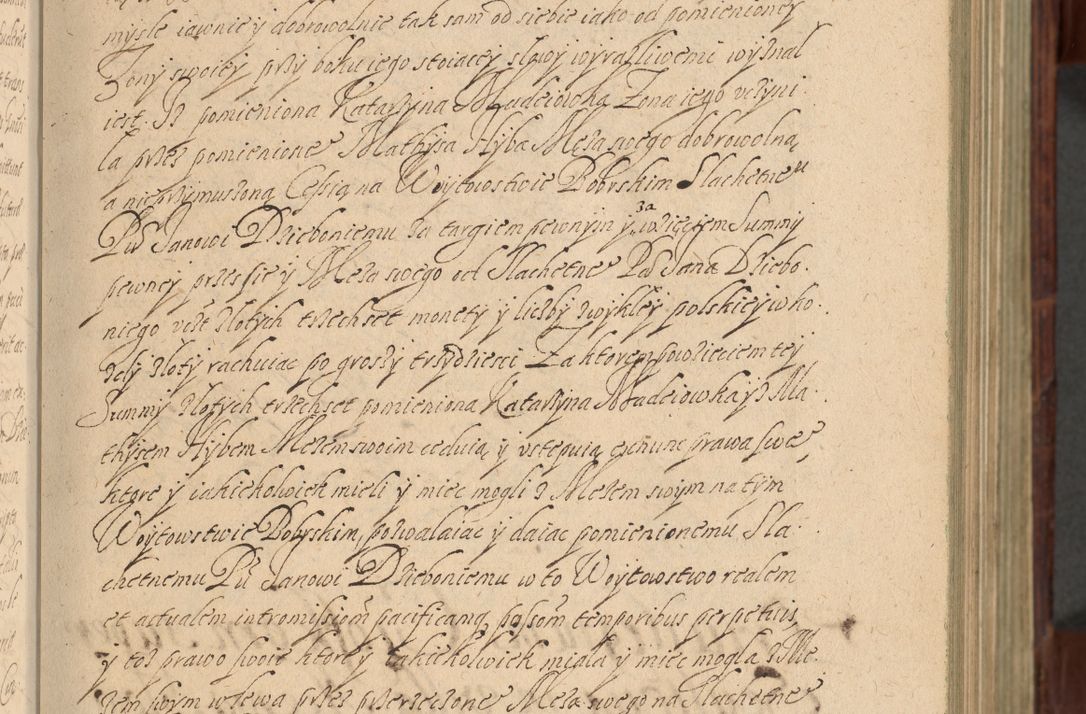 mysle iawnie y dobrowolnie tak sam od siebie iako od pomienioney
Zony swoiey przy boku iego stoiącey słowy wyrazliwemi wyznal
iest. Iż pomieniona Katarzyna Madeiowka Zona iego uczyni-
la przez pomienione Mathysa Hyba Męza swego dobrowolną,
a nieprzymuszoną Cessią na Woytowostwie Bobrskim Slachetne
Pu Janowi Dzieboniemu za targiem pewnym y za wzięciem Summy
pewney przes się y Męza swego od Slachetne Pa Jana Dziebo-
niego vczt zlotych trzechset monety y liczby zwykley polskiey w ko-
żdy zloty rachuiac po groszy trzydziesci Za ktorem powzięciem tey
Summy zlotych trzechset pomieniona Katarzyna Madeiowka y z Ma-
thysem Hybem Męzem swoim ceduią y vstępuią ex nunc prawa swe,
ktore y iakiekolwiek mieli y miec mogli z Męzem swym na tym
Woytowstwie Bobyskim, pozwalaiac y daiac pomienionemu Sla-
chetnemu Pu Janowi Dzieboniemu w to Woytowstwo realem
et actualem intromissiom pacificamq possom temporibus perpetuis
y toż prawo swoie ktore y iakiekolwiek miala y miec mogla z Mę-
żem swym wlewa przez przerzeczone Męża swego na Slachetne